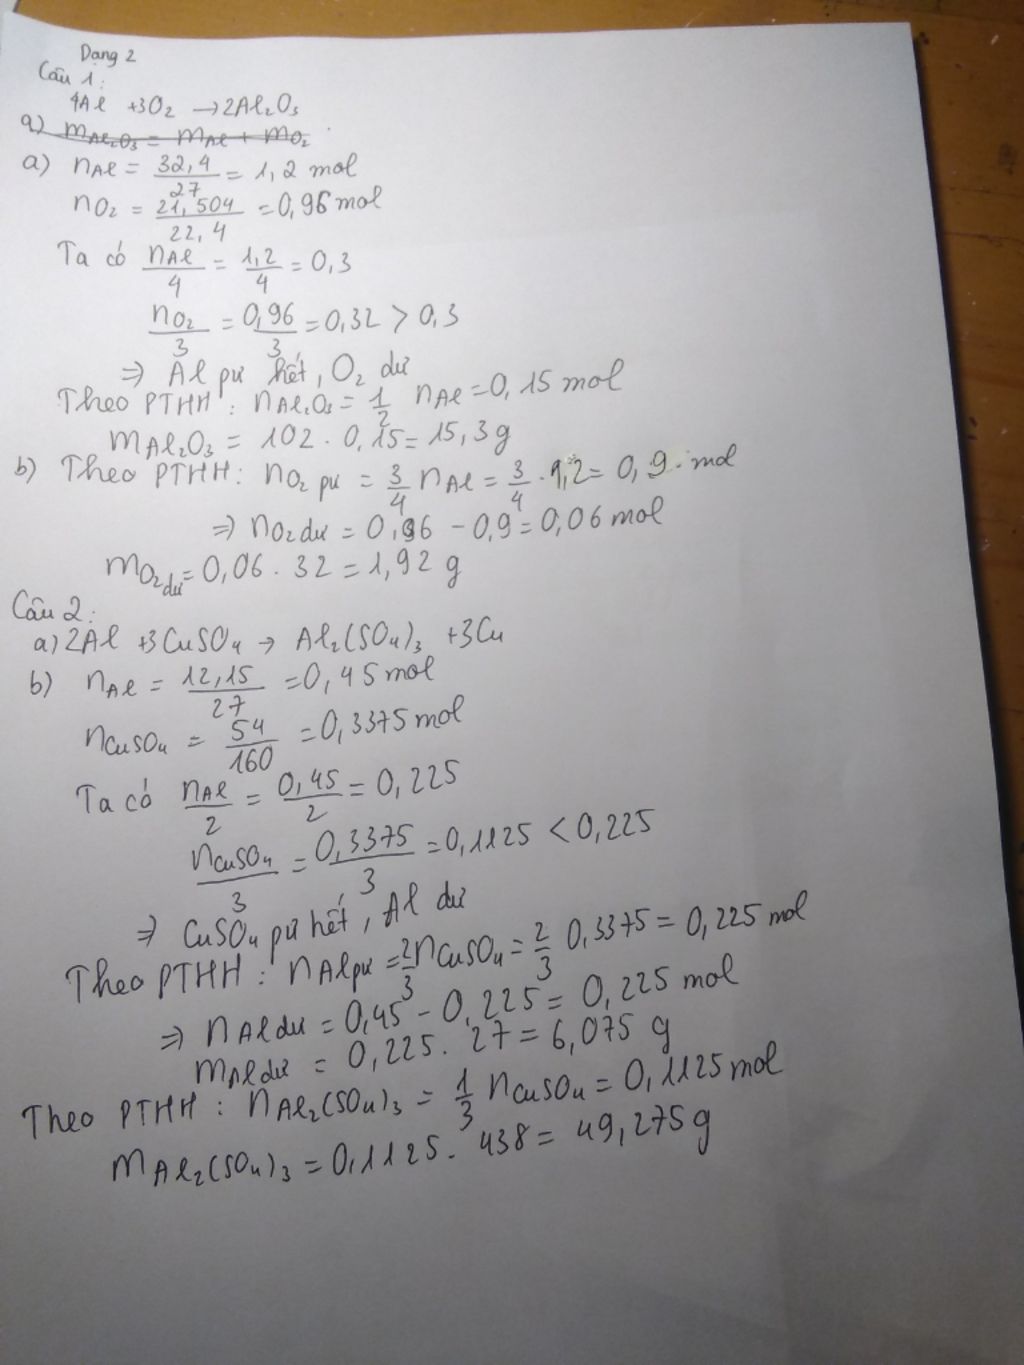 Dạng 2
Câu 1:
4Al +3O₂ → 2Al₂O₃
a) mAl₂O₃ = mAl + mO₂
a) nAl = 32,4/27 = 1,2 mol
nO₂ = 21,504/22,4 = 0,96 mol
Ta có nAl/4 = 1,2/4 = 0,3
nO₂/3 = 0,96/3 = 0,32 > 0,3
⇒ Al pư hết, O₂ dư
Theo PTHH : nAl₂O₃ = 1/2 nAl = 0,15 mol
mAl₂O₃ = 102 . 0,15 = 15,3g
b) Theo PTHH: nO₂ pư = 3/4 nAl = 3/4 . 1,2 = 0,9 mol
⇒ nO₂ dư = 0,96 - 0,9 = 0,06 mol
mO₂ dư = 0,06 . 32 = 1,92 g
Câu 2:
a) 2Al +3CuSO₄ → Al₂(SO₄)₃ +3Cu
b) nAl = 12,15/27 = 0,45 mol
nCuSO₄ = 54/160 = 0,3375 mol
Ta có nAl/2 = 0,45/2 = 0,225
nCuSO₄/3 = 0,3375/3 = 0,1125 < 0,225
⇒ CuSO₄ pư hết, Al dư
Theo PTHH : nAl pư = 2/3 nCuSO₄ = 2/3 0,3375 = 0,225 mol
⇒ nAl dư = 0,45 - 0,225 = 0,225 mol
mAl dư = 0,225 . 27 = 6,075 g
Theo PTHH : nAl₂(SO₄)₃ = 1/3 nCuSO₄ = 0,1125 mol
mAl₂(SO₄)₃ = 0,1125 . 438 = 49,275 g